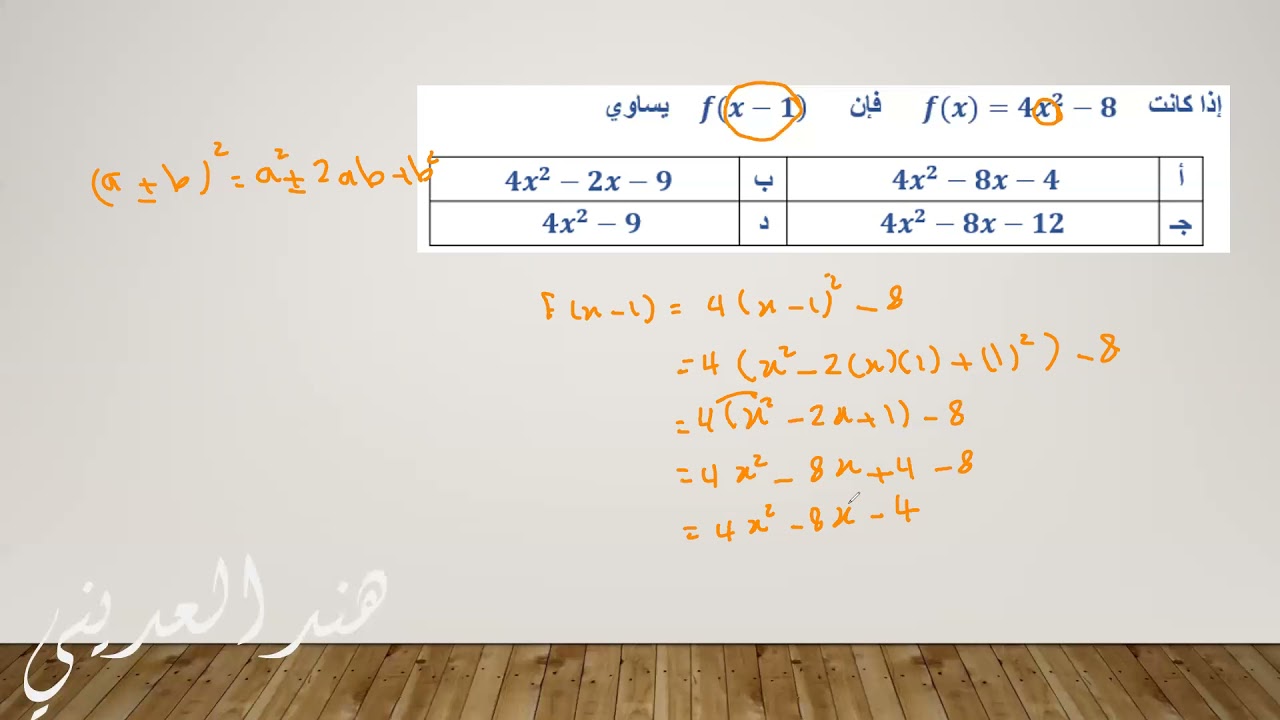 إذا كانت f(x) = 4x² − 8 فإن f(x − 1) يساوي
أ 4x² − 8x − 4 ب 4x² − 2x − 9
جـ 4x² − 8x − 12 د 4x² − 9
(a ± b)² = a² ± 2ab + b²
F(x − 1) = 4(x − 1)² − 8
= 4(x² − 2(x)(1) + (1)²) − 8
= 4(x² − 2x + 1) − 8
= 4x² − 8x + 4 − 8
= 4x² − 8x − 4
هند العديني